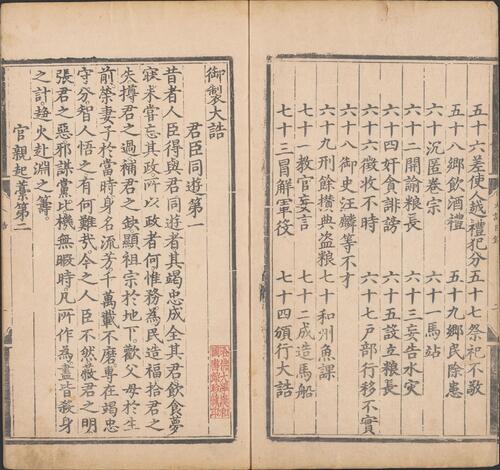 五十六差使人越禮犯分　五十七祭祀不敬
五十八鄉飲酒禮　五十九鄉民除患
六十沉匿卷宗　六十一馬站
六十二開諭粮長　六十三妄告水灾
六十四奸貪誹謗　六十五設立粮長
六十六徵收不時　六十七戶部行移不實
六十八御史汪麟等不才
六十九刑餘攢典盗粮　七十和州魚課
七十一教官妄言　七十二成造馬船
七十三冒解軍役　七十四頒行大誥
御製大誥
君臣同遊第一
昔者人臣得與君同遊者其竭忠成全其君飲食夢
寐未嘗忘其政所以政者何惟務為民造福拾君之
失撙君之過補君之缺顯祖宗於地下歡父母於生
前榮妻子於當時身名流芳千萬載不磨專在竭忠
守分智人悟之有何難哉今之人臣不然蔽君之明
張君之惡邪謀黨比機無暇時凡所作為盡皆殺身
之計趨火赴淵之籌。
官親起藁第二